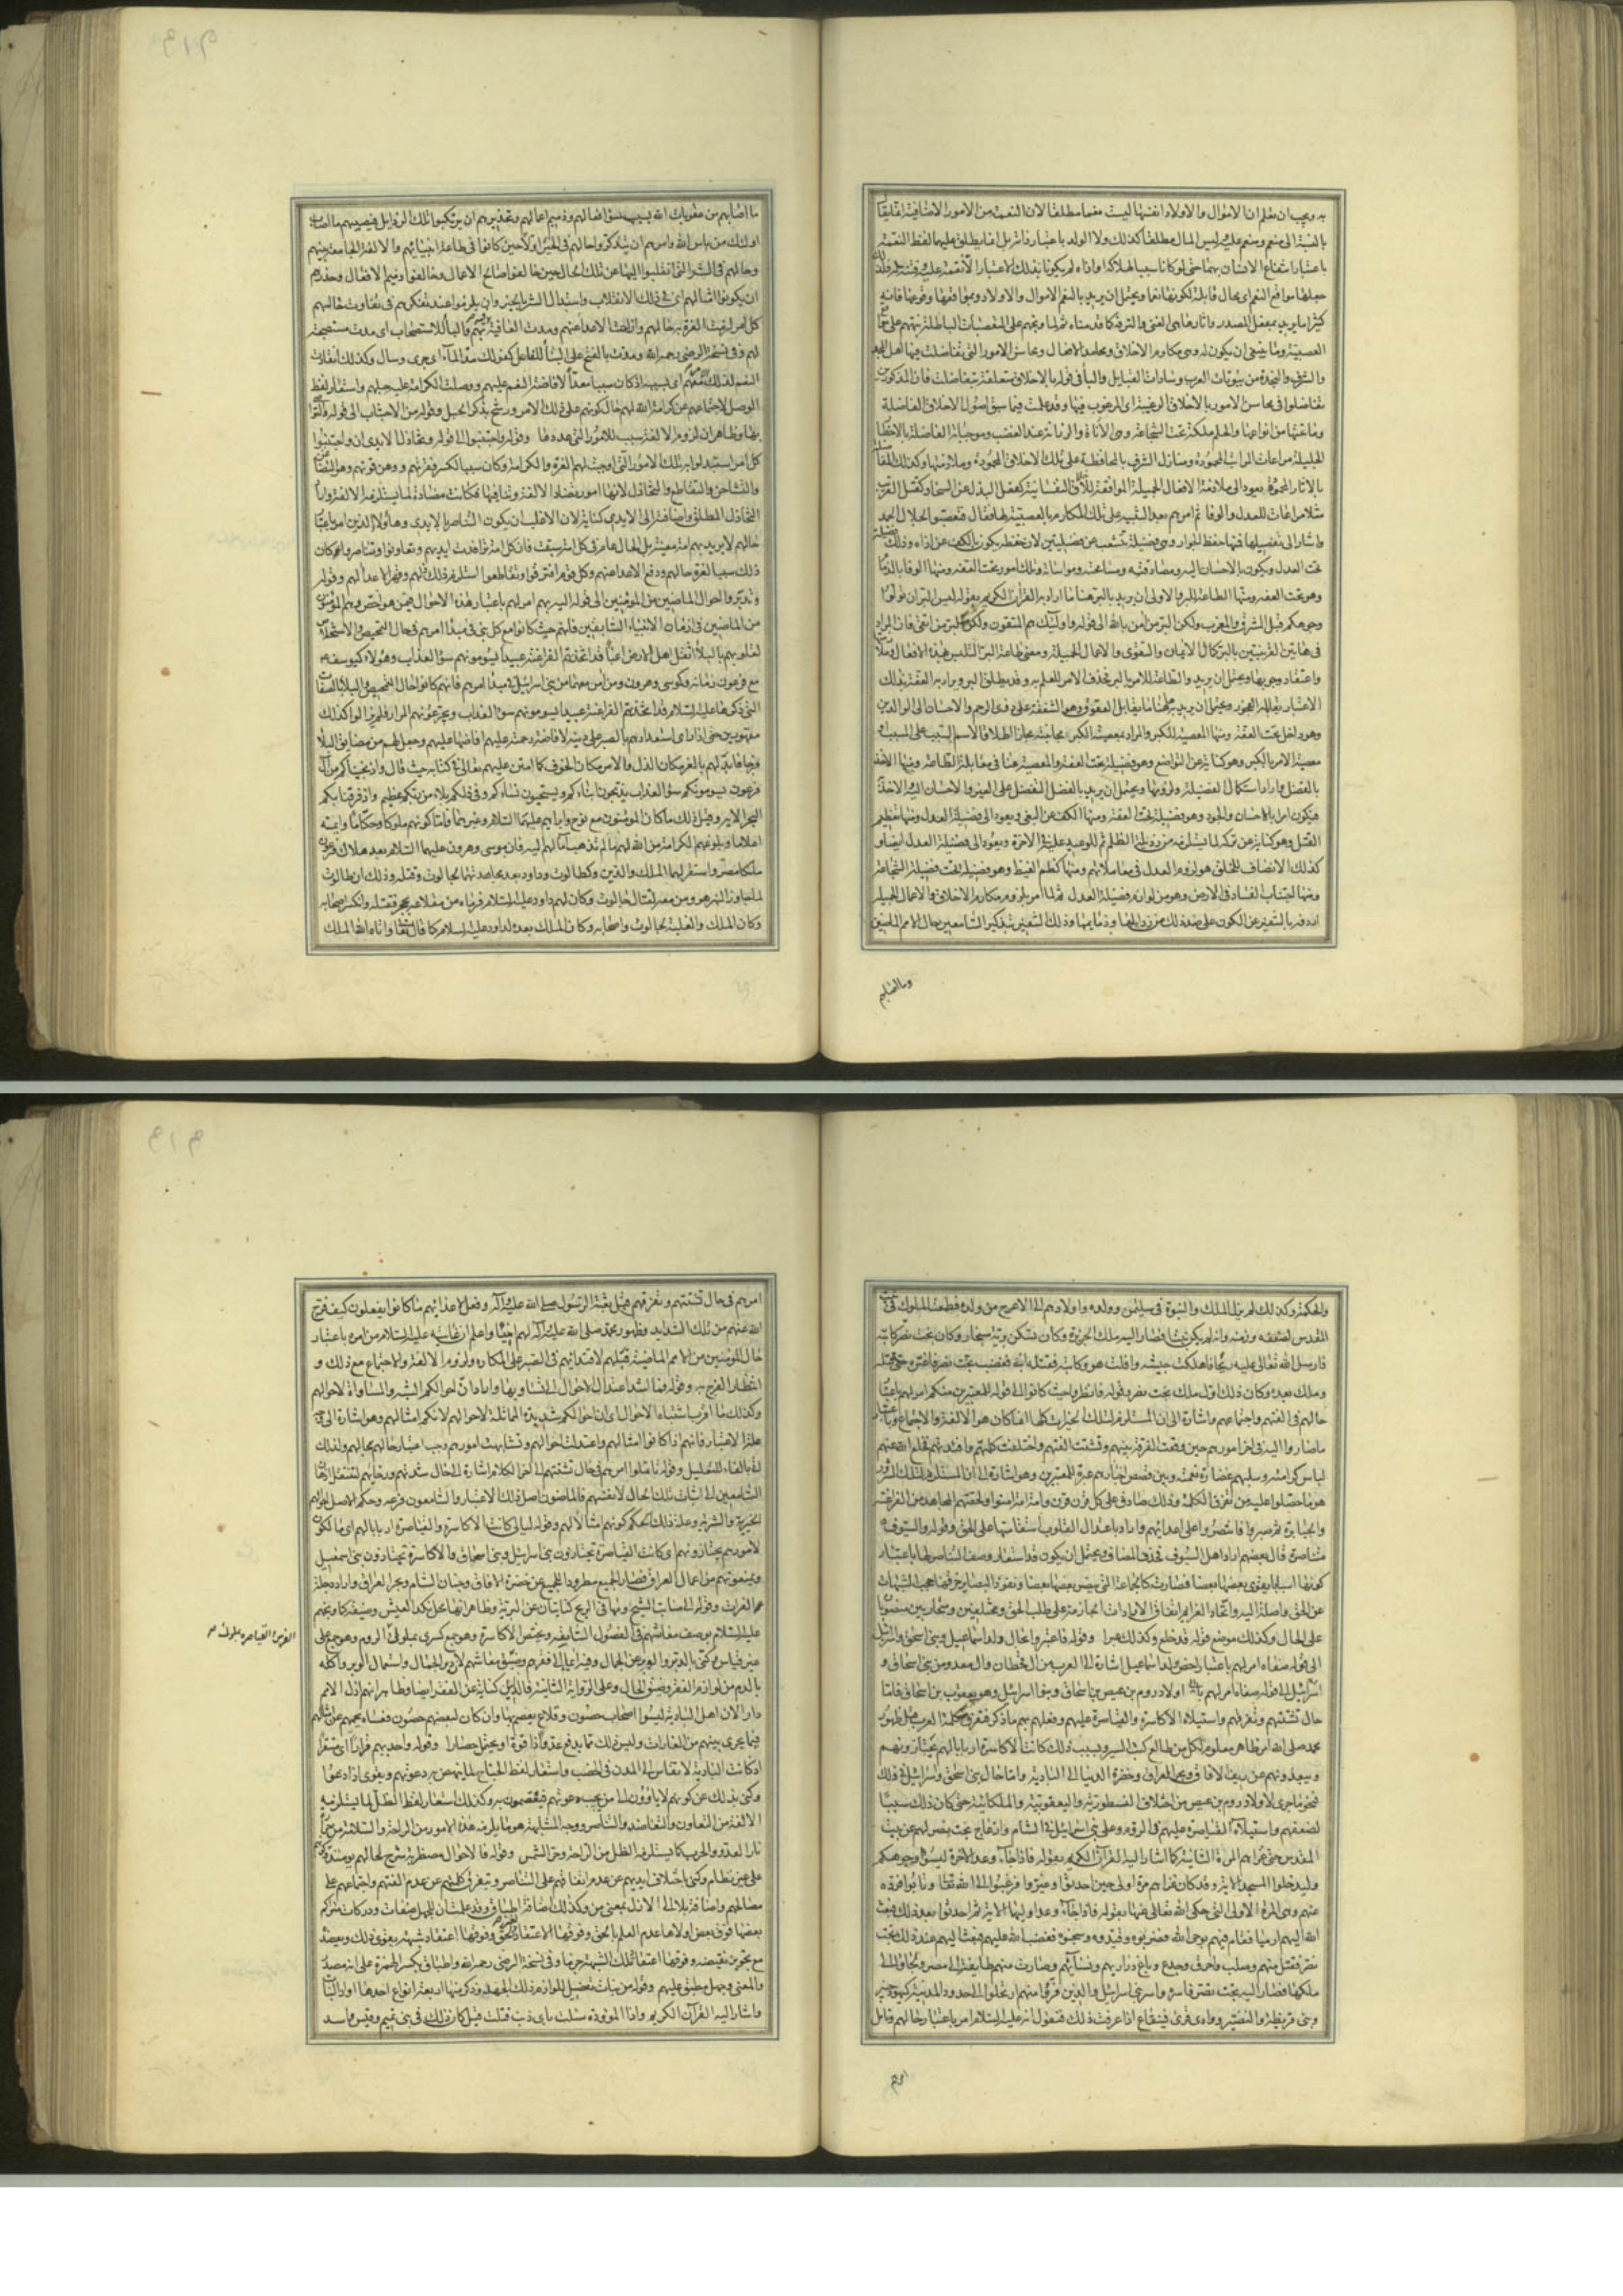 به ويجب ان نعلم ان الاموال والاولاد انفسها ليست نعما مطلقا لان النعمة من الامور الاضافية
بالنسبة الى منعم ومنعم عليه وليس المال مطلقا كذلك ولا الولد باعتبار ذاته بل انما يطلق عليهما لفظ النعمة
باعتبار انتفاع الانسان بهما حتى لو كانا سببا لهلاكه او اذاه لم يكونا بذلك الاعتبار الا نقمة عليه وفتنة
جعلها مواقع النعم اى محال قابلة لكونها نعما ويحتمل ان يريد بالنعم الاموال والاولاد وبمواقعها وقوعها فانه
كثيرا ما يريد بمفعل المصدر واثارها هى الغنى والترفه كما قدمناه ثم لما وبخهم على العصبيات الباطلة نبههم على
العصبية وما ينبغى ان يكون له وهى مكارم الاخلاق ومحامد الافعال ومحاسن الامور التى تفاضلت فيها اهل المجد
والشرف والنجدة من بيوتات العرب وسادات القبايل والباء فى قوله بالاخلاق متعلقة بتفاضلت فان المذكورين
تفاضلوا فى محاسن الامور بالاخلاق الرغيبة اى المرغوب فيها وقد علمت فيما سبق اصول الاخلاق الفاضلة
وما تحتها من انواعها والحلم ملكة تحت الشجاعة وهى الاناة والرزانة عند الغضب وموجباته الفاضلة بالاخطار
الجليلة مراعات المراتب المحمودة ومنازل الشرف بالمحافظة على تلك الاخلاق المحمودة وملازمتها وكذلك
بالاثار المحمودة يعود الى ملازمة الافعال الجميلة الموافقة للاخلاق النفسانية كفعل البذل عن السخا وكفعل القرب
مثلا مراعات للعدل والوفا ثم امرهم بعد التنبيه على تلك المكارم بالعصبية لها فقال فتعصبوا لخلال الحمد
واشار الى تفصيلها فمنها حفظ الجوار وهى فضيلة تتشعب عن فضيلتين لان حفظه يكون بالكف عن اذاه وذلك
تحت العدل ويكون بالاحسان اليه ومصادقته ومسامحته ومواساته وتلك امور تحت العفة ومنها الوفا بالذمام
وهو تحت العفه ومنها الطاعة للبر والاولى ان يريد بالبر هنا ما اراد به القرآن الكريم بقوله ليس البر ان تولوا
وجوهكم قبل المشرق والمغرب ولكن البر من آمن بالله الى قوله واولئك هم المتقون ولكن البر من اتقى فان المراد
فى هاتين القرينتين بالبر كمال الايمان والتقوى والاعمال الجميلة ومعنى طاعة البر التلبس بهذه الافعال
واعتقاد وجوبها ويحتمل ان يريد والطاعة للامر بالبر فحذف الامر للعلم به وقد يطلق البر ويراد به العفة وبذلك
الاعتبار يقابله الفجور ويحتمل ان يريد به هنا ما يقابل العقوق وهو الشفقة على ذوى الرحم والاحسان الى الوالدين
وهو داخل تحت العفة ومنها المعصية للكبر والمراد بمعصية الكبر مجانبته مجازا اطلاقا لاسم السبب على المسبب
معصية الامر بالكبر وهو كناية عن التواضع وهو فضيلة تحت العفة والمعصية هنا فى مقابلة الطاعة ومنها الاخذ
بالفضل واراد استكمال الفضيلة ولزومها ويحتمل ان يريد بالفضل التفضل على الغير والاحسان اليه
فيكون امرا بالاحسان والجود وهو فضيلة تحت العفة ومنها الكف عن البغى ويعود الى فضيلة العدل ومنها
القتل وهو كناية عن تركه لما يستلزمه من رذيلة الظلم ثم للوعيد عليه فى الاخرة ويعود الى فضيلة العدل ايضا و
كذلك الانصاف للخلق هو لزوم العدل فى معاملاتهم ومنها كظم الغيظ وهو فضيلة تحت فضيلة الشجاعة
ومنها اجتناب الفساد فى الارض وهو من لوازم فضيلة العدل ثم لما امر بلزوم مكارم الاخلاق والاعمال الجميلة
اردفه بالتنفير عن الكون على ضد ذلك من رذايلها وذمايمها وذلك لتنفير بتذكير السامعين حال الامم الماضين
وما اصابهم
ما اصابهم من عقوبات الله بسبب سوء افعالهم وذميم اعمالهم وتحذيرهم ان يرتكبوا تلك الرذايل فيصيبهم ما اصاب
اولئك من باس الله وامرهم ان يتذكروا حالهم فى الخير اولا حين كانوا فى طاعة انبيائهم والالفة الجامعة بينهم
وحالهم فى الشر التى انقلبوا اليها عن تلك الحال حين خالفوا صالح الاعمال وحالفوا ذميم الافعال وحذرهم
ان يكونوا امثالهم اى فى ذلك الانقلاب واستبدال الشر بالخير وان يلزموا عند تفكرهم فى تفاوت حاليهم
كل امر لزمت العزة به حالهم وازاحت الاعداء عنهم ومدت العافية بهم والباء للاستصحاب اى مدت مستصحبة
لهم وفى نسخة الرضى رحمه الله ومدت بالفتح على البناء للفاعل كقولك مد الماء اى جرى وسال وكذلك انقادت
النعم لذلك معهم اى بسببه اذ كان سببا معدا لافاضة النعم عليهم ووصلت الكرامة عليه حبلهم واستعار لفظ
الوصل لاجتماعهم عن كرامة الله لهم حال كونهم على ذلك الامر ورشح بذكر الحبل وقوله من الاجتناب الى قوله والتواصى
بها وظاهر ان لزوم الالفة سبب للامور التى عددها وقوله واجتنبوا الى قوله وتخاذل الايدى اى واجتنبوا
كل امر استبدلوا به تلك الامور التى اوجبت لهم العزة والكرامة وكان سببا لكسر فقرتهم ووهن قوتهم وهو التضاغن
والتشاحن والتقاطع والتخاذل لانها امور تضاد الالفة وتنافيها فكانت مضادة لما يستلزمه الالفة واراد
التخاذل المطلق واضافته الى الايدى كناية لان الاغلب ان يكون التناصر بالايدى وهاؤلاء الذين امر باعتبار
حالهم لا يريد بهم امة معينة بل الحال عام فى كل امة سبقت فان كل امة ترافدت ايديهم وتعاونوا وتناصروا كان
ذلك سببا لعزة حالهم ودفع الاعداء عنهم وكل قوم افترقوا وتقاطعوا استلزم ذلك ذلهم وقهر الاعداء لهم وقوله
وتدبروا احوال الماضين من المؤمنين الى قوله اليه بهم امر لهم باعتبار هذه الاحوال فيمن هو اخص وهم المؤمنون
من الماضين فى ازمان الانبياء السابقين فانهم حيث كانوا مع كل نبى فى مبدأ امرهم فى حال التمحيص والاستخلاص
لقلوبهم بالبلاء اثقل اهل الارض اعباء قد اتخذتهم الفراعنة عبيدا ليسومونهم سوء العذاب وهؤلاء كيوسف
مع فرعون زمانه وكموسى وهرون ومن امن معهما من بنى اسرائيل فى مبدأ امرهم فانهم كانوا حال التمحيص والبلاء بالصفات
التى ذكرها عليه السلام قد اتخذتهم الفراعنة عبيدا يسومونهم سوء العذاب ويجرعونهم المرار فلم يزالوا كذلك
مقهورين حتى اذا راى استعدادهم بالصبر على دينه لافاضة رحمته عليهم افاضها عليهم وجعل لهم من مضايق البلاء
فرجا فابدلهم بالعز مكان الذل والامن مكان الخوف كما امتن عليهم تعالى فى كتابه حيث قال واذ نجيناكم من آل
فرعون يسومونكم سوء العذاب يذبحون ابناءكم ويستحيون نساءكم وفى ذلكم بلاء من ربكم عظيم واذ فرقنا بكم
البحر الايه وقبل ذلك ما كان المؤمنون مع نوح وابراهيم عليهما السلام وغيرهما فاما كونهم ملوكا وحكاما وايمة
اعلاما وبلوغهم الكرامة من الله لهم ما لم تذهب آمالهم اليه فان موسى وهرون عليهما السلام بعد هلاك فرعون
ملكا مصر واستقر لهما الملك والدين وكطالوت وداود بعد مجاهدتهما لجالوت وقتله وذلك ان طالوت
لما جاوز النهر هو ومن معه لقتال جالوت وكان لهم داود عليه السلام فرماه من مقلاعه بحجر فقتله وانكسر اصحابه
وكان الملك والغلبة لطالوت واصحابه وكان الملك بعده لداود عليه السلام كما قال تعالى واتاه الله الملك
والحكمة وكذلك لم يزل الملك والنبوة فى سليمن وولده واولادهم الى الاعرج من ولده فطمعت الملوك فى بيت
المقدس لضعفه وزمنه وانه لم يكن نبيا فصار اليه ملك الجزيرة وكان يسكن برية سنجار وكان بخت نصر كاتبه
فارسل الله تعالى عليه ريحا فاهلكت جيشه وافلت هو وكاتبه فقتله ابنه فغضب بخت نصر فاغتره حتى قتله
وملك بعده وكان ذلك اول ملك بخت نصر وقوله فانظروا حيث كانوا الى قوله للمعتبرين منكم امر لهم باعتبار
حالهم فى الفتهم واجتماعهم واشارة الى ان المستلزم لتلك الخيرات كلها انما كان هو الالفة والاجتماع وباعتبار
ما صاروا اليه فى اخر امورهم حين وقعت الفرقة بينهم وتشتت الفتهم واختلفت كلمتهم وافئدتهم فخلع الله عنهم
لباس كرامته وسلبهم غضارة نعمته وبين قصص اخبارهم عبرة للمعتبرين وهو اشارة الى ان المستلزم لتلك الشرور
هو ما حصلوا عليه من تفرق الكلمة وذلك صادق على كل قرن قرن وامة امة امنوا ولحقتهم المجاهدة من الفراعنة
والجبابرة ثم صبروا فانتصروا على اعدائهم واراد باعتدال القلوب استقامتها على الحق وقوله والسيوف
متناصرة قال بعضهم اراد اهل السيوف فحذف المضاف ويحتمل ان يكون قد استعار وصف التناصر لها باعتبار
كونها اسبابا يقوى بعضها بعضا فصارت كالجماعة التى ينصر بعضها بعضا ونفوذ البصاير خرقها حجب الشبهات
عن الحق واصلة اليه واتحاد العزايم اتفاق الارادات الجازمة على طلب الحق ومختلفين ومتحاربين منصوبان
على الحال وكذلك موضع قوله قد خلع وكذلك عبرا وقوله فاعتبروا بحال ولد اسماعيل وبنى اسحق واسرائيل
الى قوله صفاه امر لهم باعتبار اخص وولد اسماعيل اشارة الى العرب من ال قحطان وال معد ومن بنى اسحاق
اولاد روم بن عيص بن اسحاق وبنوا اسرائيل وهو يعقوب بن اسحاق فاما
حال تشتتهم وتفرقهم واستيلاء الاكاسرة والقياصرة عليهم وفعلهم بهم ما ذكر فتفرق كلمة العرب قبل ظهور
محمد صلى الله امر ظاهر معلوم لكل من طالع كتب السير وبسبب ذلك كانت الاكاسرة اربابا لهم يحتازونهم
ويبعدونهم عن ريف الافاق وبحر العراق وخضرة الدنيا الى البادية واما حال بنى اسحق واسرائيل فى ذلك
فنحو ما جرى لاولاد روم بن عيص من اختلاف النسطورية واليعقوبية والملكائية حتى كان ذلك سببا
لضعفهم واستيلاء القياصرة عليهم فى الروم وعلى بنى اسرائيل فى الشام وانزعاج بخت نصر لهم عن بيت
المقدس حتى غزاهم المرة الثانية كما اشار اليه القرآن الكريم بقوله فاذا جاء وعد الآخرة ليسؤا وجوهكم
وليدخلوا المسجد الاية وقد كان غزاهم مرة اولى حين احدثوا وغيروا فرغبوا الى الله تعالى وتابوا فرده
عنهم وهى المرة الاولى التى حكى الله تعالى عنها بقوله فاذا جاء وعد اوليهما الاية ثم احدثوا بعد ذلك فبعث
الله اليهم ارميا فقام فيهم بوحى الله فضربوه وقيدوه وسجنوه فغضب الله عليهم فبعث اليهم عند ذلك بخت
نصر فقتل منهم وصلب واحرق وجدع وباع ذراريهم ونساءهم وصارت منهم طايفة الى مصر ولجأوا الى
ملكها فصار اليه بخت نصر فاسره واسر بنى اسرائيل والذين فروا منهم ارتحلوا الى حدود المدينة كيهود خيبر
وبنى قريظة والنضير ووادى القرى وقينقاع اذا عرفت ذلك فنقول انه عليه السلام امر باعتبار حالهم وتامل
امرهم
امرهم فى حال تشتتهم وتفرقهم قبل بعثة الرسول صلى الله عليه وآله وفعل الاعداء بهم ما كانوا يفعلون كيف فرج
الله عنهم من تلك الشدايد وظهور محمد صلى الله عليه وآله لهم نبيا واعلم ان غايته عليه السلام من امره باعتبار
حال المؤمنين من الامم الماضية قبلهم لاقتدائهم فى الصبر على المكاره ولزوم الالفة والاجتماع مع ذلك و
انتظار الفرج به وقوله فما اشد اعتدال الاحوال اى تساويها واراد ان احوالكم اشبه والمساواة لاحوالهم
وكذلك ما اقرب اشتباه الاحوال اى ان احوالكم شديدة المماثلة لاحوالهم لانكم امثالهم وهو اشارة الى
علة الاعتبار فانهم اذا كانوا امثالهم واعتدلت احوالهم وتشابهت امورهم وجب اعتبار حالهم بحالهم ولذلك
اتى بالفاء للتعليل وقوله تاملوا امرهم فى حال تشتتهم الى آخر الكلام اشارة الى حال شدتهم ورخايهم لتنتقل اذهان
السامعين الى اثبات تلك الحال لانفسهم فالماضون اصل ذلك الاعتبار والسامعون فرعه وحكم الاصل احوالهم
الخيرية والشرية وعلة ذلك الحكم كونهم امثالا لهم وقوله ليالى كانت الاكاسرة والقياصرة اربابا لهم اى مالكون
لامورهم يحتازونهم اى كانت القياصرة يحتازون بنى اسرائيل وبنى اسحاق والاكاسرة يحتازون بنى اسمعيل
ويمنعونهم من اعمال العراق فصار الجميع مطرودا للجميع عن خضرة الافاق وجنان الشام وبحر العراق واراد دجلة
والفرات وقوله الى منابت الشيح ومهافى الريح كنايتان عن البرية وظاهر انها محل نكد العيش وضيقه كما وبخهم
عليه السلام بوصف معاشهم فى الفصول السابقه ويختص الاكاسرة وهو جمع كسرى بملوك الروم وهو جمع على
الفرس والقياصره بملوك صح
غير قياس وكنى بالدبر والوبر عن الجمال وفيه ايماء الى فقرهم وضيق معاشهم لان دبر الجمال واستعمال الوبر واكله
بالدم من لوازم الفقر وضيق الحال وعلى الرواية الثانية فالذل كناية عن الفقر ايضا وظاهر انهم اذل الامم
دارا لان اهل البادية ليسوا اصحاب حصون وقلاع يعتصم بها وان كان لبعضهم حصون فعساه يحميهم عن امثالهم
فيما يجرى بينهم من الغارات وليس ذلك مما يدفع عدوا ذا قوة او يحتمل حصارا وقوله واجدبهم قرارا اى مستقرا
اذ كانت البادية لا تقاس الى المدن فى الخصب واستعار لفظ الجناح لما ينهضون به دعوتهم ويقوى اذا دعوا
وكنى بذلك عن كونهم لا ياوون الى من يجيب دعوتهم فيعتصمون به وكذلك استعار لفظ الظل لما يستلزمه
الالفة من التعاون والتعاضد والتناصر ووجه المشابهة هو ما يلزم هذه الامور من الراحة والسلامة من
نار العدو والحرب كما يستلزمه الظل من الراحة من حر الشمس وقوله فالاحوال مضطربة شرح لحالهم يومئذ
على غير نظام وكنى باختلاف ايديهم عن عدم اتفاقهم على التناصر وبتفرق كلمتهم عن عدم الفتهم واجتماعهم على
مصالحهم واضافة بلاء الى الازل بمعنى من وكذلك اضافة اطباق وقد علمت ان للجهل صفات ودركات متراكم
بعضها فوق بعض اولاها عدم العلم بالحق وفوقها الاعتقاد لغير الحق وفوقها اعتقاد شبهة يقوى ذلك ويعضده
مع تجويز نقيضه وفوقها اعتقاد تلك الشبهة جزما وفى نسخة الرضى رحمه الله واطباق بكسر الهمزة على انه مصدر
والمعنى وجهل مطبق عليهم وقوله من بنات تفصيل للوازم ذلك الجهل وذكر منها اربعة انواع احدها واد البنات
واشار اليه القرآن الكريم واذا الموؤدة سئلت باى ذنب قتلت قيل كان ذلك فى بنى تميم وقيس واسد